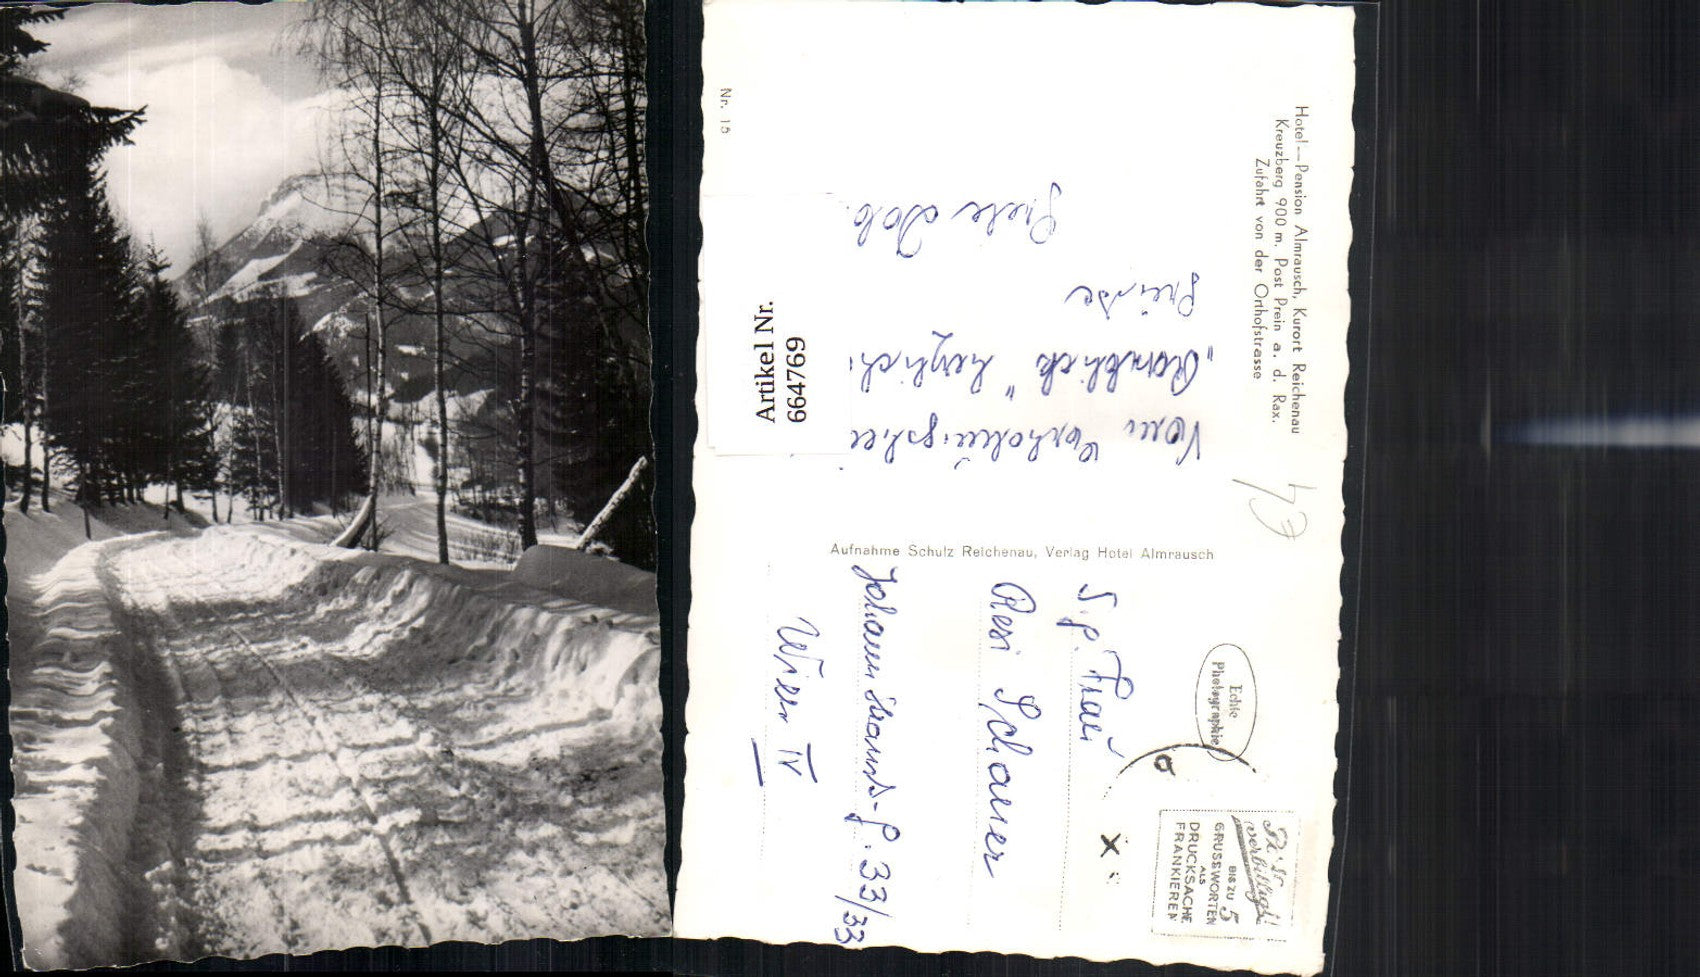 Hotel—Pension Almrausch, Kurort Reichenau
Kreuzberg 900 m. Post Prein a. d. Rax.
Zufahrt von der Orthofstrasse
Nr. 15
Vom
"
" herzlich
Grüsse
Aufnahme Schulz Reichenau, Verlag Hotel Almrausch
Echte
Photographie
BIS ZU 5
GRUSSWORTEN
ALS
DRUCKSACHE
FRANKIEREN
S. g. Frau
Resi Schauer
Johann Strauss-g. 33/33
Wien IV
Artikel Nr.
664769